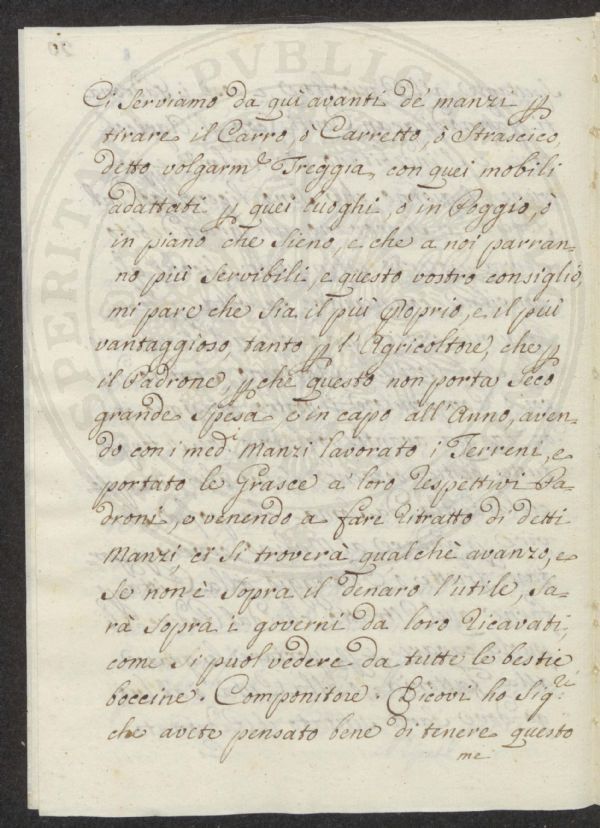 Ci serviamo da qui avanti de manzi p
tirare il Carro, ò Carretto, ò Strascico,
detto volgarm.e Treggia, con quei mobili
adattati p quei luoghi, ò in Poggio, ò
in piano che sieno, e che a noi parran-
no più servibili, e questo vostro consiglio,
mi pare che sia il più proprio, e il più
vantaggioso, tanto p l'Agricoltore, che p
il Padrone, pche questo non porta seco
grande spesa, e in capo all'Anno, aven-
do con i med.i Manzi lavorato i Terreni, e
portato le Grasce a loro respettivi Pa-
droni, e venendo a fare ritratto di detti
Manzi, ci si troverà qualchè avanzo, e
se non è sopra il denaro l'utile, sa-
rà sopra i governi da loro ricavati,
come si puol vedere da tutte le bestie
boccine. Componitore. Dicovi ho Sig.re
che avete pensato bene di tenere questo
me